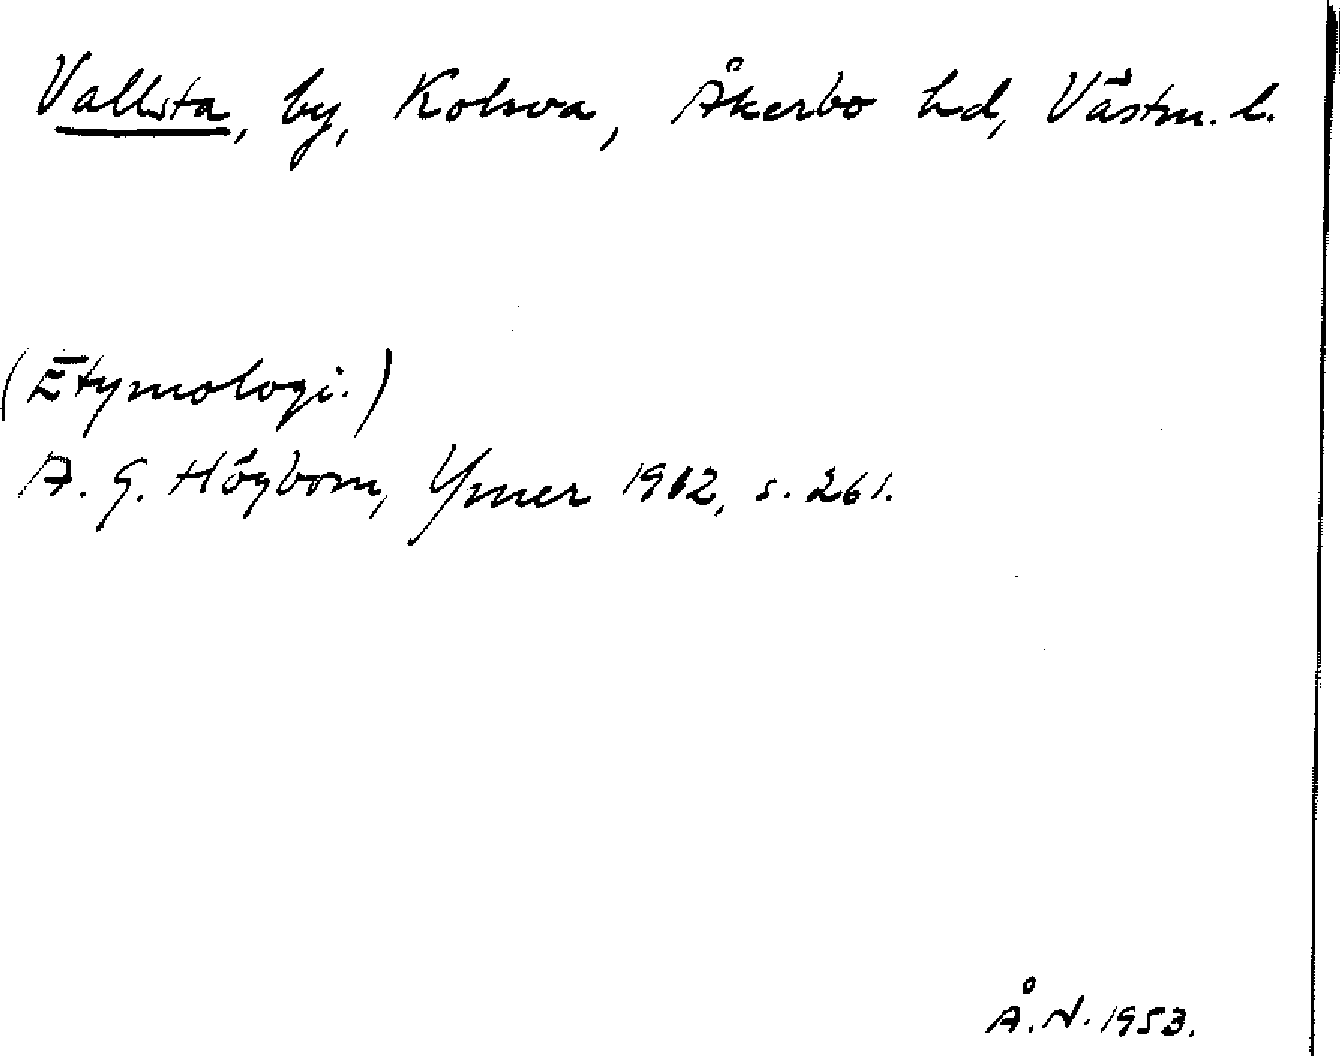 Vallsta, by, Kolsva, Åkerbo hd, Västm. l.
(Etymologi.)
A. G. Högbom, Ymer 1912, s. 261.
Å. N. 1953.